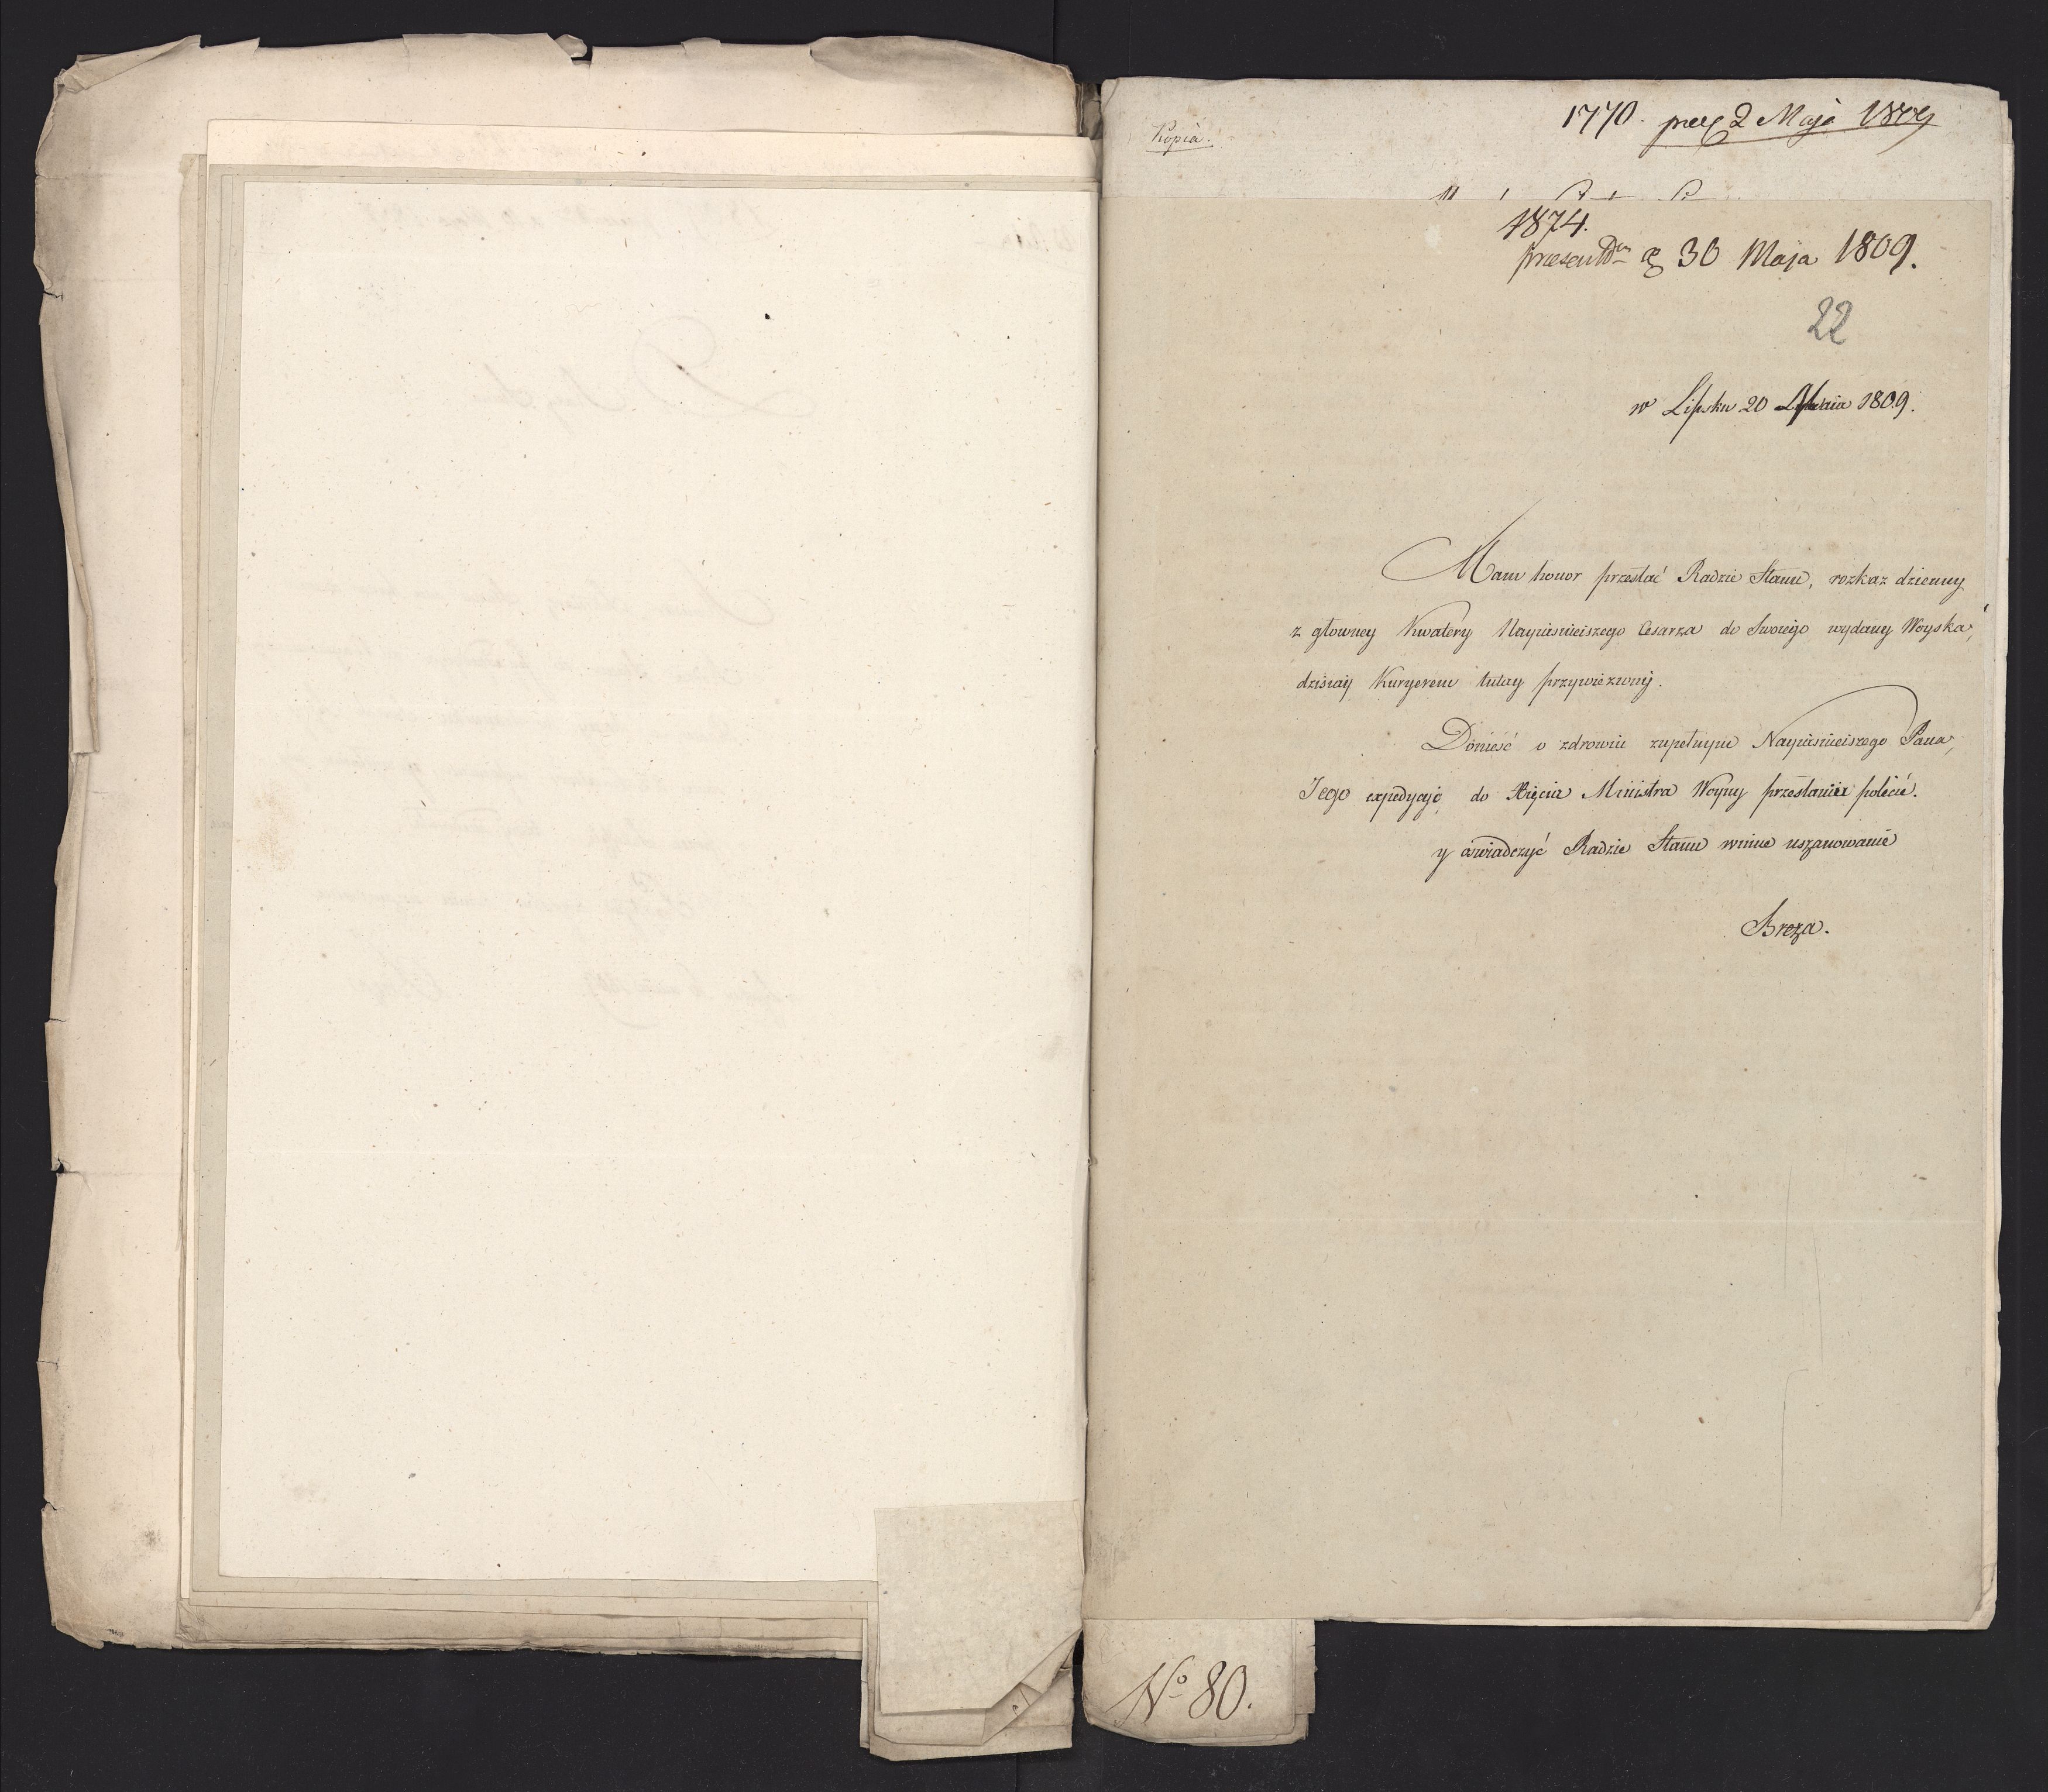 Kopia.
1770. præs 2 Maja 1809
1874.
præsentm d 30 Maja 1809.
22
w Lipsku 20 Maia 1809.
Mam honor przesłać Radzie Stanu, rozkaz dzienny
z główney Kwatery Nayiasnieiszego Cesarza do Swoiego wydany Woyska,
dzisiay Kuryerem tutay przywieziony.
Donieść o zdrowiu zupełnym Nayiasnieiszego Pana,
Jego expedycyę do Xięcia Ministra Woyny przesłanie polecić.
y oświadczyć Radzie Stanu winne uszanowanie
Breza.
No 80.